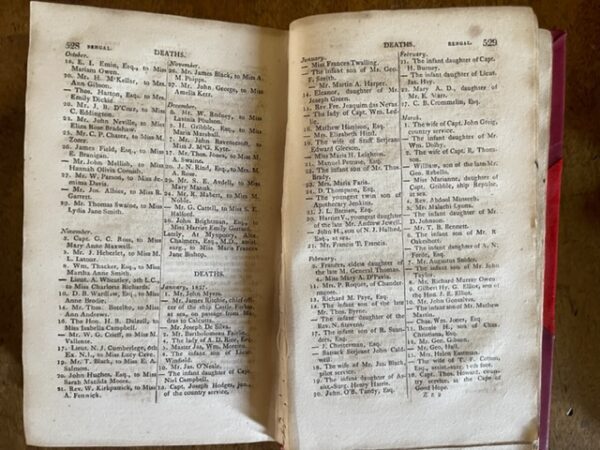 528 BENGAL. DEATHS.
October.
18. E. I. Emin, Esq., to Miss
Mariam Owen.
20. Mr. H. M'Kellor, to Mrs.
Ann Gibson.
— Thos. Harton, Esq. to Mrs.
Emily Dickie.
22. Mr. J. B. D'Cruz, to Miss
C. Eddington.
23. Mr. John Neville, to Miss
Eliza Rose Bradshaw.
25. Mr. C. P. Chater, to Miss M.
Zorer.
26. James Field, Esq., to Miss
E. Branigan.
— Mr. John Mellish, to Miss
Hannah Olivia Cornish.
27. Mr. W. Parsons, to Miss Je-
mima Davis.
— Mr. Jos. Albies, to Miss E.
Garrett.
29. Mr. Thomas Swaine, to Miss
Lydia Jane Smith.
November.
2. Capt. G. C. Ross, to Miss
Mary Anne Maxwell.
— Mr. J. Heberlet, to Miss M.
L. Latour.
— Wm. Thacker, Esq., to Miss
Martha Anne Smith.
— Lieut. A. Wheatley, 5th L.C.,
to Miss Charlotte Richards.
10. D. B. Wardlaw, Esq., to Miss
Anne Brodie.
14. Mr. Thos. Botelho, to Miss
Ann Andrews.
16. The Hon. H. B. Dalzell, to
Miss Isabella Campbell.
— Mr. W. G. Crieff, to Miss M.
Vallente.
17. Lieut. N. J. Cumberlege, 6th
Ex. N.I., to Miss Lucy Cave.
— Mr. T. Black, to Miss E. A.
Salmon.
20. John Hughes, Esq., to Miss
Sarah Matilda Moore.
21. Rev. W. Kirkpatrick, to Miss
A. Fenwick.
November.
26. Mr. James Black, to Miss A.
M. Phipps.
27. Mr. John George, to Miss
Amelia Kerr.
December.
4. Mr. Wm. Rodney, to Miss
Lavinia Poulson.
— J. H. Gribble, Esq., to Miss
Maria Macnabb.
— Mr. John Ravenscroft, to
Miss J. M'G. Kyle.
17. Mr. Thos. Jones, to Miss M.
A. Swaine.
20. J. N. Rind, Esq., to Mrs. M.
A. Rose.
23. Mr. S. E. Avdell, to Miss
Mary Manuk.
24. Mr. R. Habett, to Miss M.
Noble.
— Mr. G. Cattell, to Miss S. E.
Halford.
26. John Brightman, Esq., to
Miss Harriet Emily Gerrard.
Lately, At Mynpoory, Alex.
Chalmers, Esq., M.D., assist.
surg., to Miss Maria Frances
Jane Bishop.
DEATHS.
January, 1827.
1. Mr. John Myers.
— Mr. James Ritchie, chief offi-
cer of the ship Lady Forbes,
at sea, on passage from Ma-
dras to Calcutta.
— Mr. Joseph De Silva.
2. Mr. Bartholomew Fairlie.
4. The lady of A. D. Rice, Esq.
5. Master A. Wm. Moreton.
8. The infant son of Lieut.
Winfield.
10. Mr. Jas. O'Neale.
— The infant daughter of Capt.
Niel Campbell.
13. Capt. Joseph Hodges, jun.
of the country service.
DEATHS. BENGAL. 529
January.
— Miss Frances Twalling.
— The infant son of Mr. Geo.
E. Smith.
— Mr. Martin A. Harper.
14. Eleanor, daughter of Mr.
Joseph Green.
15. Rev. Fre Joaquim das Neves
— The lady of Capt. Wm. Les-
lie.
18. Mathew Hamood, Esq.
— Mrs. Elizabeth Hind.
19. The wife of Staff Serjeant
Edward Gleeson.
— Miss Maria H. Leighton.
21. Manoel Pereira, Esq.
22. The infant son of Mr. Thos.
Brady.
23. Mrs. Maria Faria.
24. D. Thompson, Esq.
— The youngest twin son of
Apothecary Jenkins.
27. J. L. Brenen, Esq.
29. Harriet V., youngest daughter
of the late Mr. Andrew Jewell.
— John H., son of N. J. Halhed,
Esq., at sea.
31. Mr. Francis T. Francis.
February.
6. Frances, eldest daughter of
the late M. General Thomas.
— Miss Mary A. D'Paiva.
11. Mrs. P. Roquet, of Chander-
nagore.
13. Richard M. Paye, Esq.
14. The infant son of the late
Mr. Thos. Byrne.
— The infant daughter of the
Rev. N. Stevens.
17. The infant son of R. Saun-
ders, Esq.
— J. Cheeseman, Esq.
— Barrack Serjeant John Cald-
well.
18. The wife of Mr. Jos. Black,
pilot service.
19. The infant daughter of As-
sist.-Surg. Henry Harris.
20. John. O'B. Tandy, Esq.
February.
21. The infant daughter of Capt.
H. Burney.
— The infant daughter of Lieut.
Jas. Hay.
22. Mary A. D., daughter of
Mr. E. Viers.
27. C. B. Crommelin, Esq.
March.
1. The wife of Capt. John Greig,
country service.
— The infant daughter of Mr.
Wm. Dolby.
2. The wife of Capt. R. Thom-
son.
— William, son of the late Mr.
Geo. Rebello.
— Miss Marianne, daughter of
Capt. Gribble, ship Repulse,
at sea.
4. Rev. Abdool Messeeh.
5. Mr. Malachi Lyons.
— The infant daughter of Mr.
D. Johnson.
— Mr. T. B. Bennett.
6. The infant son of Mr. R.
Oakeshott.
— The infant daughter of A. N.
Forde, Esq.
7. Mr. Augustus Snider.
— The infant son of Mr. John
Taylor.
— Mr. Richard Mercer Owen
8. Gilbert Hy. G. Elliot, son of
the Hon. J. E. Elliot.
10. Mr. John Gonsalves.
— The infant son of Mr. Mathew
Martin.
— Chas. Wm. Juter, Esq.
11. Bessie H., son of Chas.
Christiana, Esq.
— Mr. Geo. Gibson.
14. Mr. Geo. Hall.
— Mrs. Helen Eastman.
— The wife of T. F. Cotton,
Esq.,
18. Capt. Thos. Howard, coun-
try service, at the Cape of
Good Hope.
Z z 9